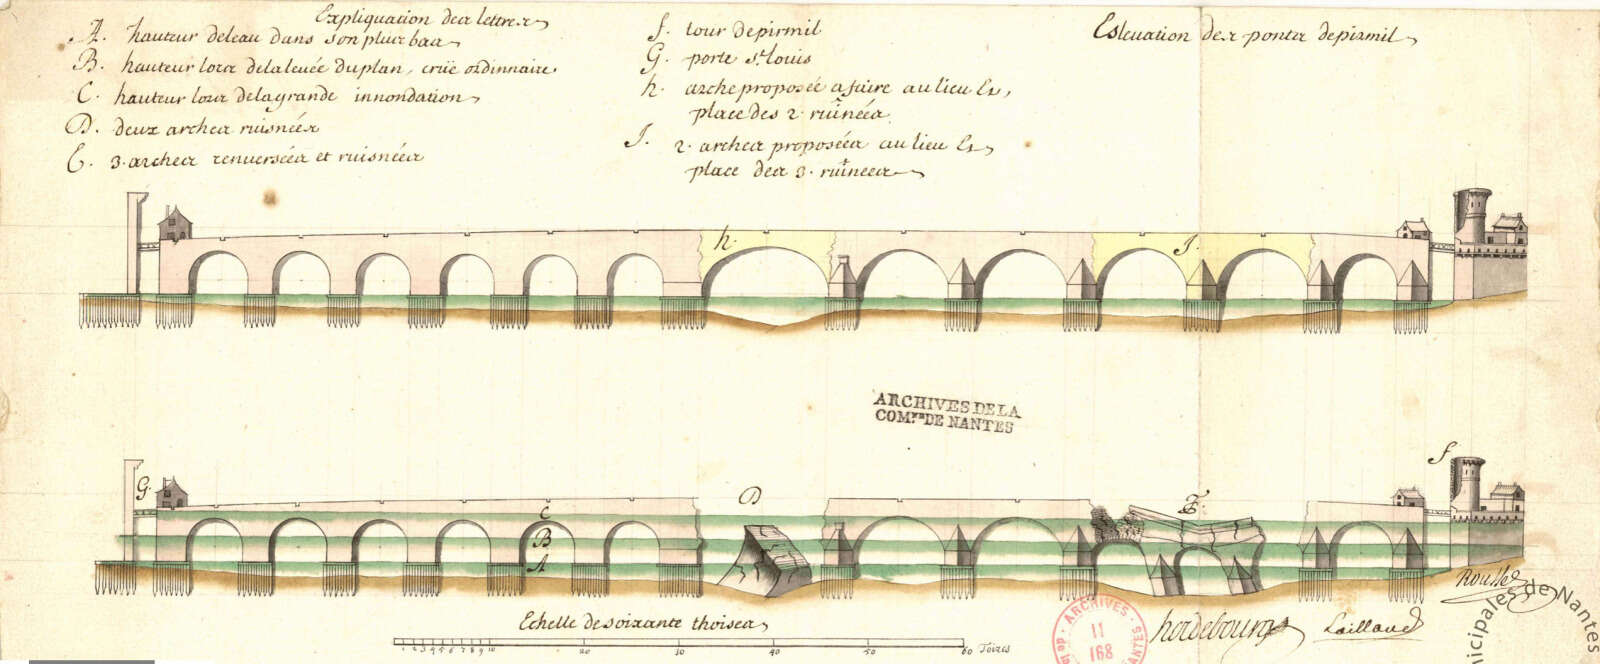 Expliquation des lettres
A. hauteur deleau dans son plus bas
B. hauteur lors delaleuée duplan, crüe ordinnaire
C. hauteur lors delagrande innondation
D. deux arches ruisnées
E. 3. arches renuersées et ruisnées
f. tour depirmil
G. porte st. louis
h. arche proposée afaire au lieu Et
place des 2. ruinées
J. 2. arches proposées au lieu Et
place des 3. ruinées
Esleuation des pontes depirmil
h.
J.
ARCHIVES DE LA
COM.NE DE NANTES
G.
D
E
f
C
B
A
Echelle desoixante thoises
1 2 3 4 5 6 7 8 9 10 20 30 40 50 60 Toizes
ARCHIVES
11
168
NANTES
hordebourg
Laillaud
Rousse
nicipales de Nantes